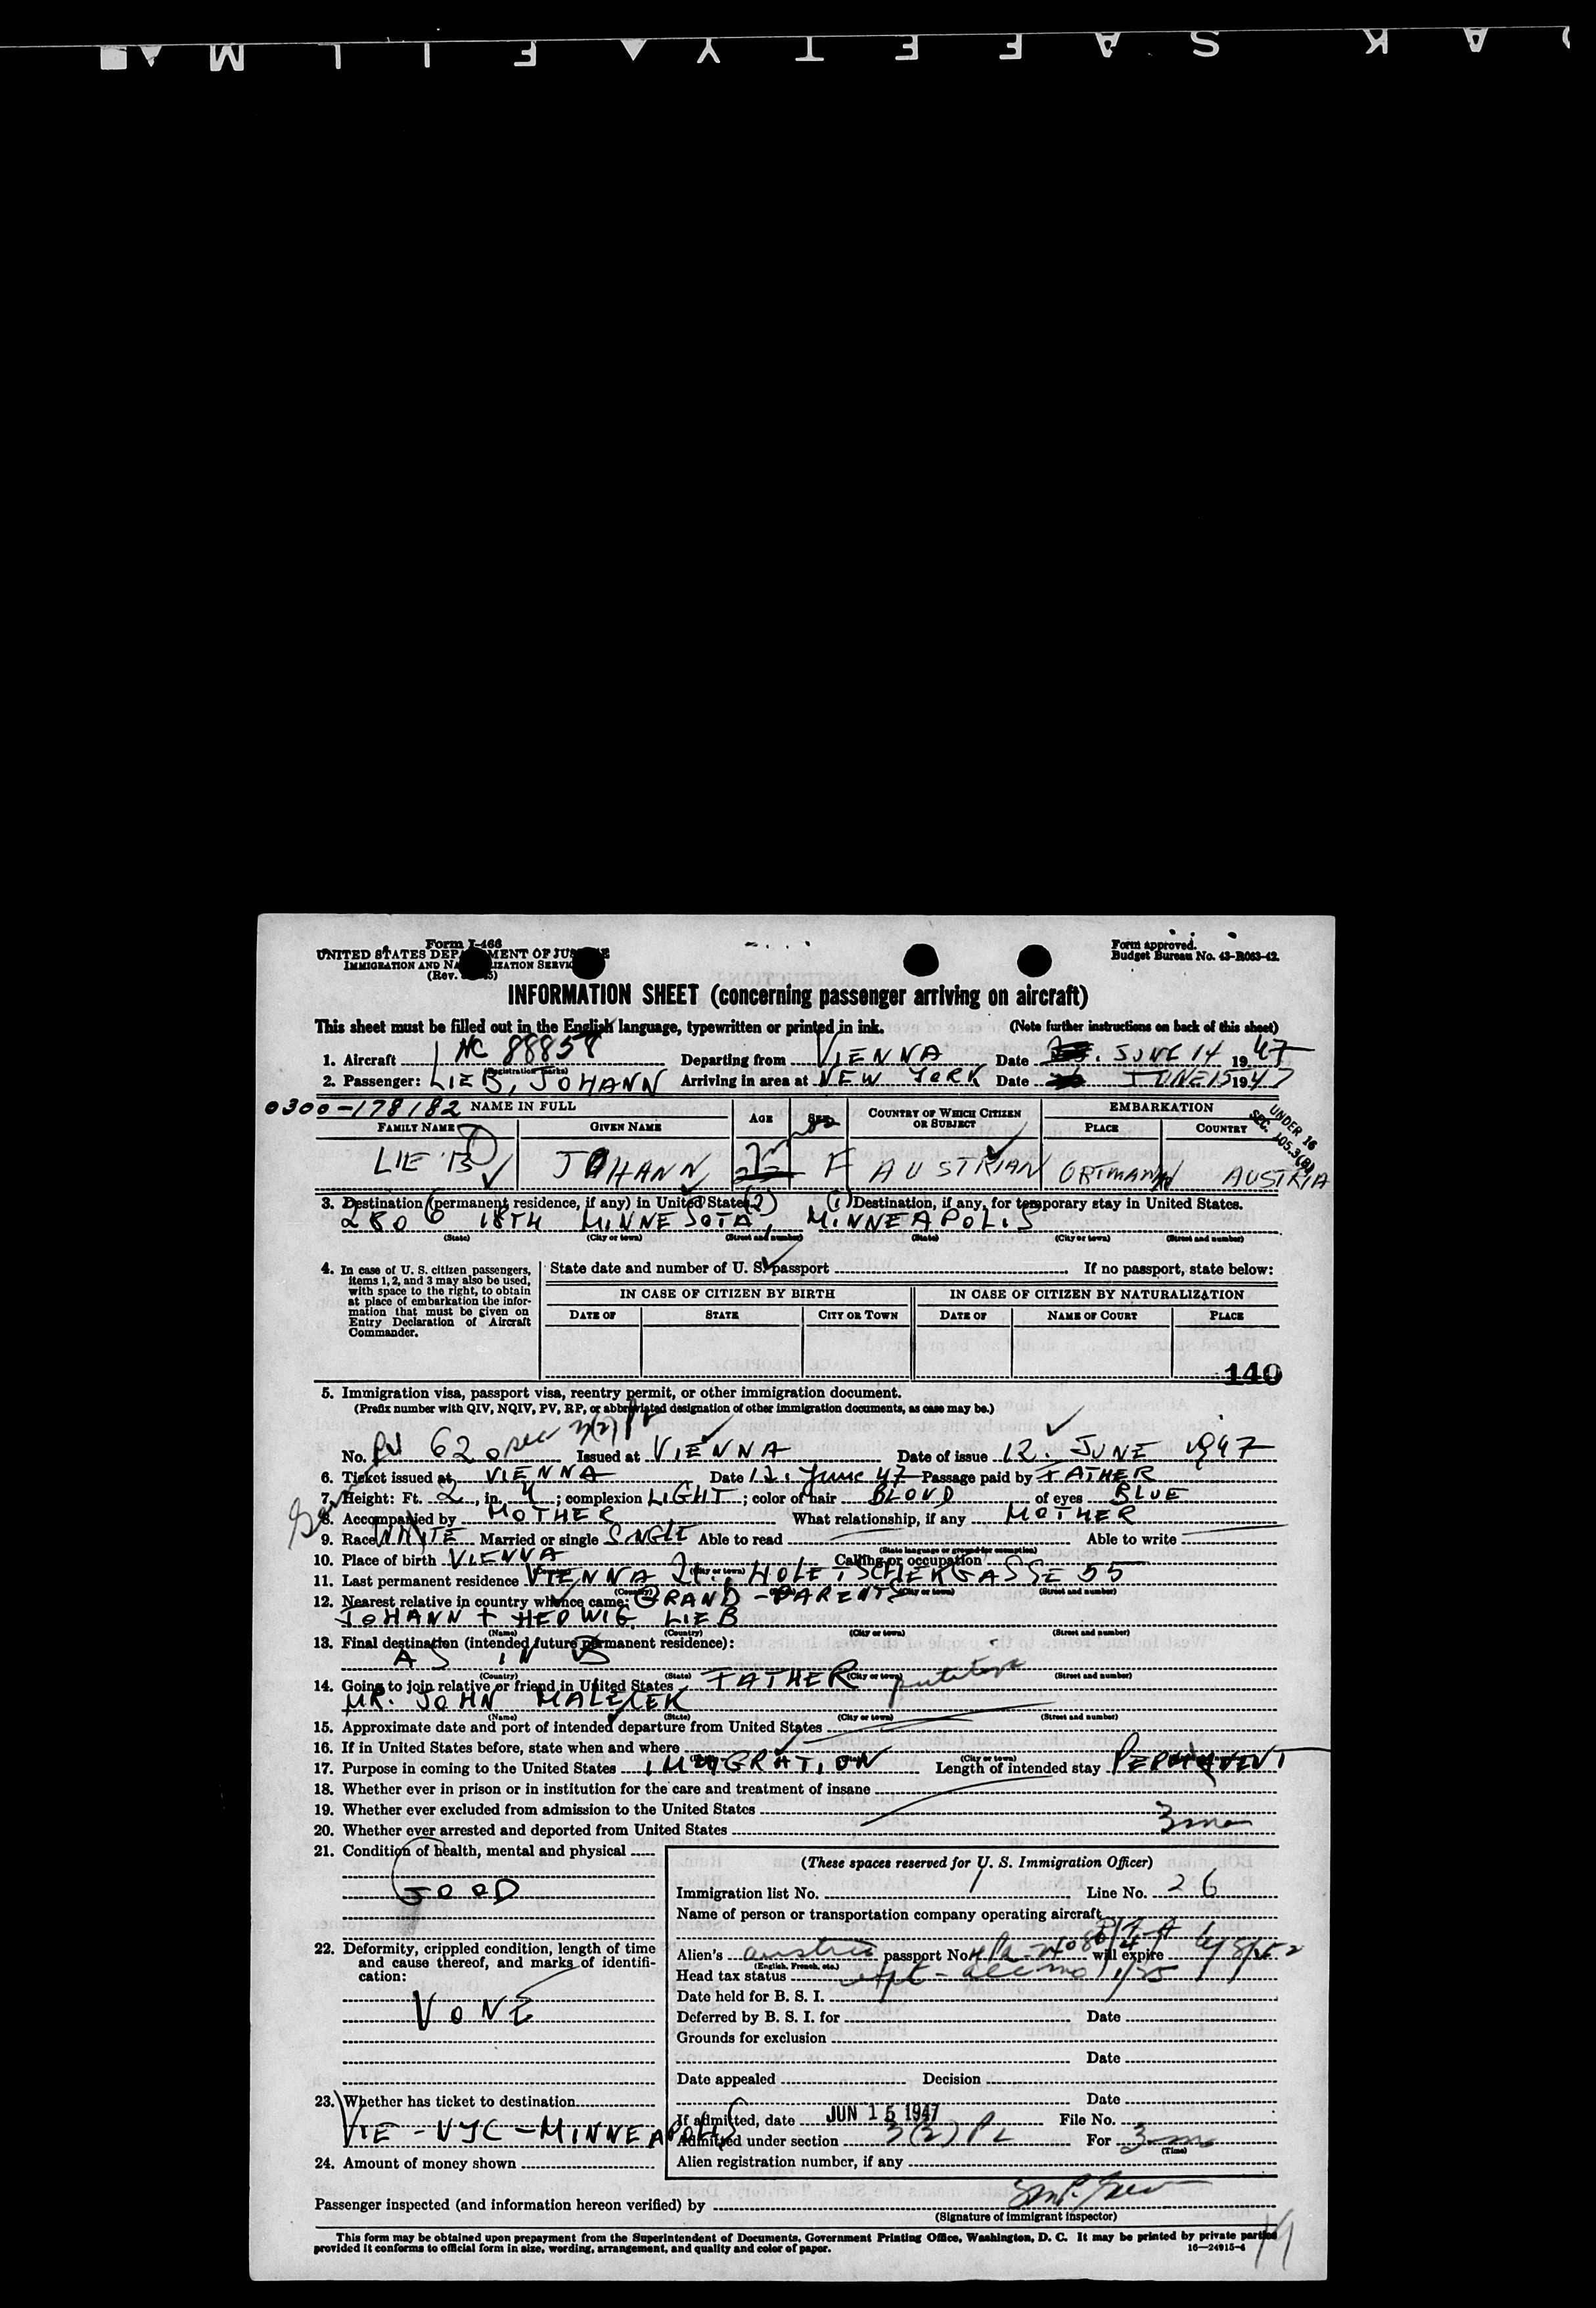 K S A F E T Y ▲ F I L M
Form I-466
UNITED STATES DEPARTMENT OF JUSTICE
IMMIGRATION AND NATURALIZATION SERVICE
(Rev.
Form approved.
Budget Bureau No. 43-R063-42.
INFORMATION SHEET (concerning passenger arriving on aircraft)
This sheet must be filled out in the English language, typewritten or printed in ink. (Note further instructions on back of this sheet)
1. Aircraft NC 88858 Departing from VIENNA Date JUNE 14 1947
(Registration marks)
2. Passenger: LIEB, JOHANN Arriving in area at NEW YORK Date JUNE 15 1947
0300-178182 NAME IN FULL AGE SEX COUNTRY OF WHICH CITIZEN OR SUBJECT EMBARKATION
FAMILY NAME GIVEN NAME PLACE COUNTRY
UNDER 16
SEC. 105.3(B)
LIEB JOHANN F AUSTRIAN ORTMANN AUSTRIA
3. Destination (permanent residence, if any) in United States (2) (1) Destination, if any, for temporary stay in United States.
2806 18TH MINNESOTA, MINNEAPOLIS
(State) (City or town) (Street and number) (State) (City or town) (Street and number)
4. In case of U. S. citizen passengers, items 1, 2, and 3 may also be used, with space to the right, to obtain at place of embarkation the information that must be given on Entry Declaration of Aircraft Commander.
State date and number of U. S. passport If no passport, state below:
IN CASE OF CITIZEN BY BIRTH IN CASE OF CITIZEN BY NATURALIZATION
DATE OF STATE CITY OR TOWN DATE OF NAME OF COURT PLACE
140
5. Immigration visa, passport visa, reentry permit, or other immigration document.
(Prefix number with QIV, NQIV, PV, RP, or abbreviated designation of other immigration documents, as case may be.)
No. PV 620 sec 3(2) Issued at VIENNA Date of issue 12. JUNE 1947
6. Ticket issued at VIENNA Date 12. June 47 Passage paid by FATHER
7. Height: Ft. 2, in. 4; complexion LIGHT; color of hair BLOND of eyes BLUE
8. Accompanied by MOTHER What relationship, if any MOTHER
9. Race WHITE Married or single SINGLE Able to read Able to write
(State language or ground for exemption)
10. Place of birth VIENNA Calling or occupation
(Country) (City or town)
11. Last permanent residence VIENNA 21., HOLETSCHEKGASSE 55
(Country) (City or town) (Street and number)
12. Nearest relative in country whence came: GRAND-PARENTS
JOHANN + HEDWIG LIEB
(Name) (Country) (City or town) (Street and number)
13. Final destination (intended future permanent residence):
AS IN
(Country) (State) (City or town) (Street and number)
14. Going to join relative or friend in United States FATHER putative
MR. JOHN MALECEK
(Name) (State) (City or town) (Street and number)
15. Approximate date and port of intended departure from United States
16. If in United States before, state when and where
(City or town)
17. Purpose in coming to the United States IMMIGRATION Length of intended stay PERMANENT
18. Whether ever in prison or in institution for the care and treatment of insane
19. Whether ever excluded from admission to the United States
20. Whether ever arrested and deported from United States 3 mo
21. Condition of health, mental and physical
GOOD
(These spaces reserved for U. S. Immigration Officer)
Immigration list No. 1 Line No. 26
Name of person or transportation company operating aircraft
22. Deformity, crippled condition, length of time and cause thereof, and marks of identification:
NONE
Alien's austria passport No. will expire
(English, French, etc.)
Head tax status
Date held for B. S. I.
Deferred by B. S. I. for Date
Grounds for exclusion
Date
Date appealed Decision
Date
23. Whether has ticket to destination
VIE - NYC - MINNEAPOLIS
If admitted, date JUN 15 1947 File No.
Admitted under section 3(2) For 3 m
(Time)
24. Amount of money shown
Alien registration number, if any
Passenger inspected (and information hereon verified) by
(Signature of immigrant inspector)
This form may be obtained upon prepayment from the Superintendent of Documents, Government Printing Office, Washington, D. C. It may be printed by private parties
provided it conforms to official form in size, wording, arrangement, and quality and color of paper. 16—24915-4